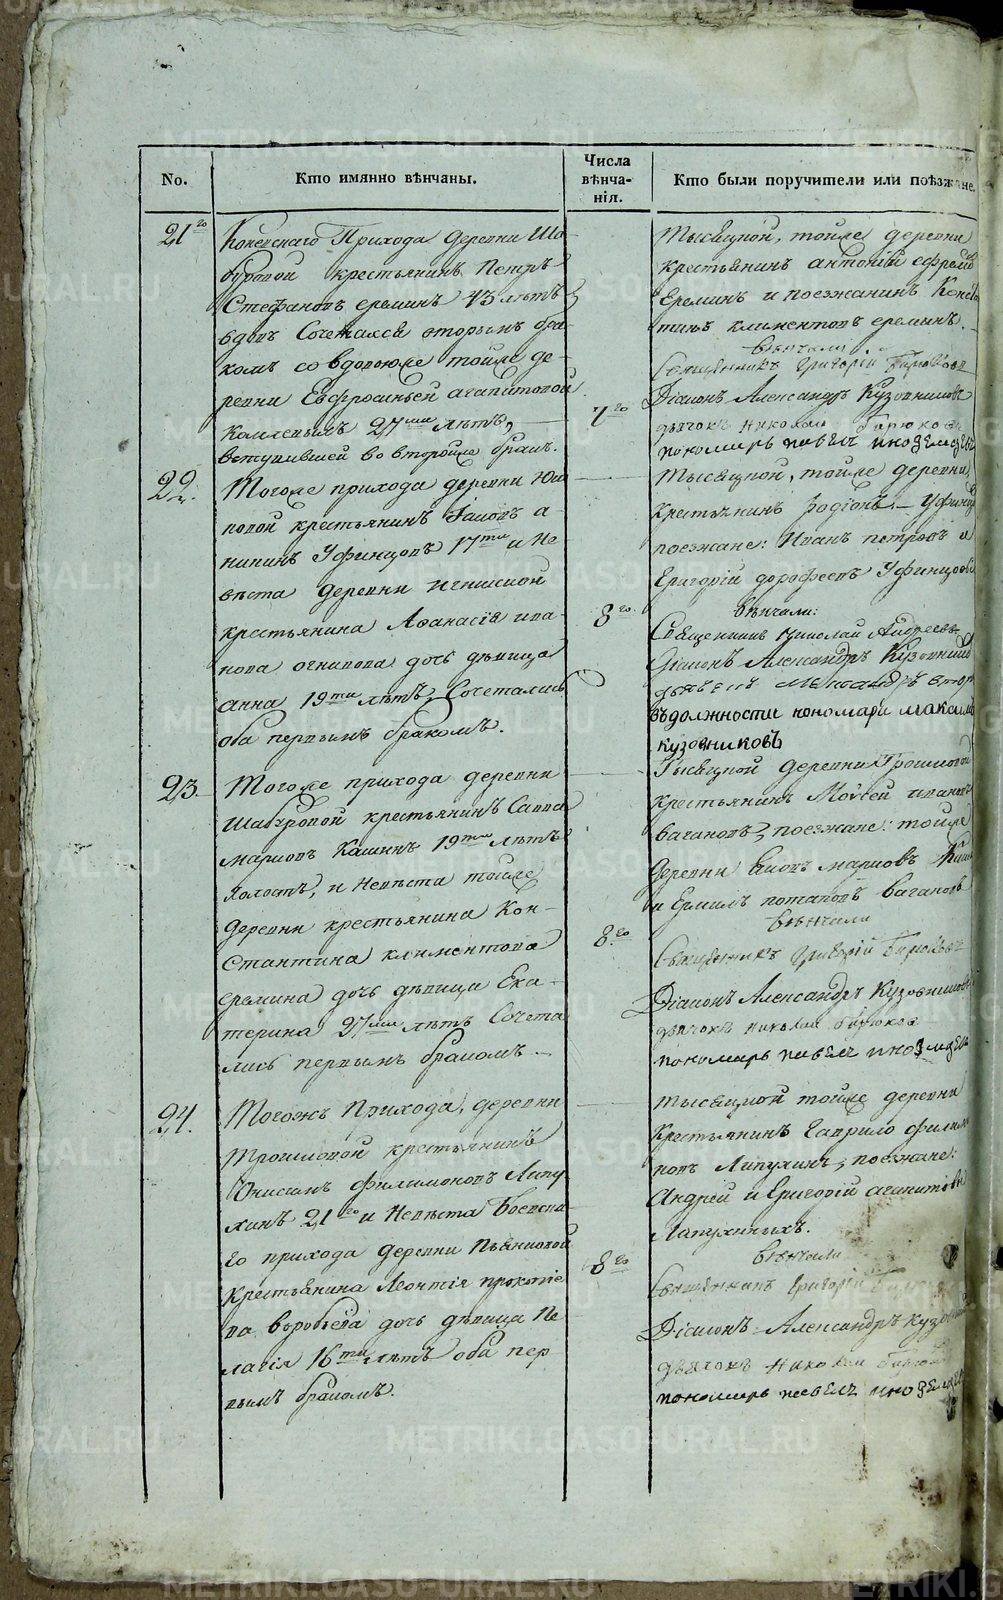 No.
Кто имянно вѣнчаны.
Числа
вѣнча-
нія.
Кто были поручители или поѣзжане.
21го
Коневскаго Прихода деревни Ша-
буровой крестьянинъ Петръ
Стефановъ ереминъ 43 лѣтъ
вдовъ Сочетался вторымъ бра-
комъ со вдовою тойже де-
ревни Евфросиньей агапитовой
27ми лѣтъ,
вступившей во второй браکъ.
7го
Тысяцкой, тойже деревни
Крестьянинъ антоній ефремов
Ереминъ и поезжанинъ Конста
тинъ климентовъ ереминъ.
вѣнчали
Священникъ Григорій Бирюковъ
Діаконъ Александръ Кузовниковъ
дьячокъ Николай Бирюковъ
пономарь павелъ иноземцевъ
22.
Тогоже прихода деревни Юш
ковой крестьянинъ Іаковъ а-
никинъ Уфинцовъ 17ти и Не
вѣста деревни
крестьянина Афанасія ива-
нова огникова дочь дѣвица
анна 19ти лѣтъ, Сочетались
оба первымъ бракомъ.
8го
Тысяцкой, тойже деревни
крестьянинъ Родіонъ Уфинц
поезжане: Иванъ петровъ и
Григорій дорофеевъ Уфинцовы
вѣнчали:
Священникъ Николай Андреевъ
Діаконъ Александръ Кузовник
въ должности пономаря максимъ
кузовниковъ
23.
Тогоже прихода деревни
Шабуровой крестьянинъ Савва
марковъ Кашинъ 19ти лѣтъ
холостъ, и Невѣста тойже
деревни крестьянина Кон-
стантина климентова
еремина дочь дѣвица Ека-
терина 27ми лѣтъ Сочета
лись первымъ бракомъ.
8го
Тысяцкой деревни Трошковой
крестьянинъ Моѵсей ивановъ
вагановъ, поезжане: тойже
деревни марковъ
и Ермилъ потаповъ вагановъ
вѣнчали
Священникъ Григорій Бирюковъ
Діаконъ Александръ Кузовниковъ
дьячокъ Николай Бирюковъ
пономарь павелъ иноземцевъ
24.
Тогожъ Прихода, деревни
Трошковой крестьянинъ
Онисимъ филимоновъ Лапу
хинъ 21го и Невѣста Боевска-
го прихода деревни Пьянковой
Крестьянина Леонтія прокопіе
ва воробьева дочь дѣвица Пе
лагія 16ти лѣтъ оба пер
вымъ бракомъ.
8го
тысяцкой тойже деревни
Крестьянинъ Гаврило филимо
новъ Лапухинъ, поезжане:
Андрей и Григорій агапитовы
Лапухиныхъ.
вѣнчали
Священникъ Григорій Бирюков
Діаконъ Александръ Кузовник
дьячокъ Николай Бирюков
пономарь павелъ иноземцевъ
METRIKI.GASO-URAL.RU